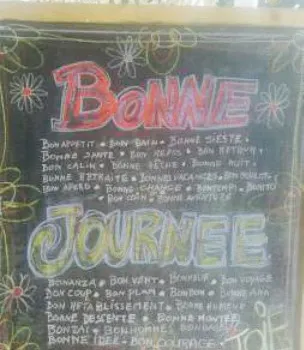 BONNE
BON APPETIT • BON BAIN • BONNE SIESTE •
BONNE SANTE • BON REPOS • BON RETOUR •
BON CALIN • BONNE PÊCHE • BONNE NUIT •
BONNE RETRAITE • BONNES VACANCES • BON BOULOT •
BON APERO • BONNE CHANCE • BON TEMPS • BONITO
BON COIN • BONNE AVENTURE
JOURNEE
BONANZA • BON VENT • BONHEUR • BON VOYAGE
BON COUP • BON PLAN • BONBON • BONNE
BON RETABLISSEMENT • BONNE HUMEUR
BONNE DESCENTE • BONNE MONTEE
BONZAI • BONHOMMES
BONNE IDEE • BON COURAGE •